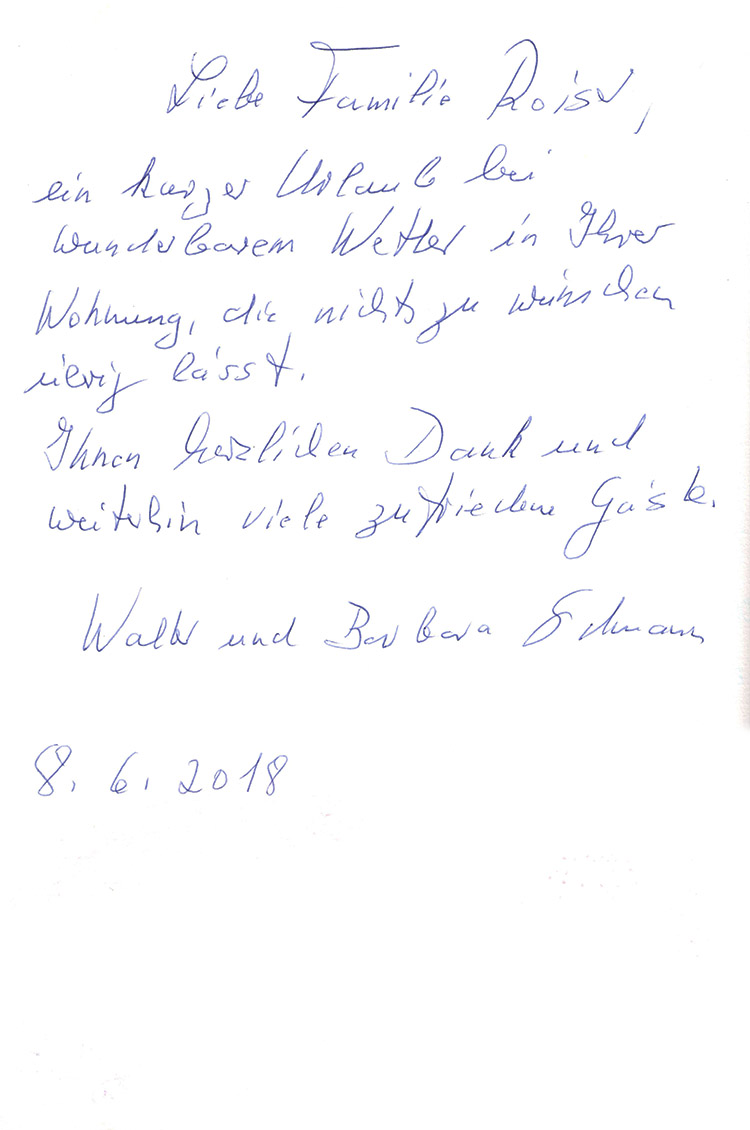 Liebe Familie
ein kurzer Urlaub bei
wunderbarem Wetter in Ihrer
Wohnung, die nichts zu wünschen
übrig lässt.
Ihnen herzlichen Dank und
weiterhin viele zufriedene Gäste.
Walter und Barbara
8. 6. 2018